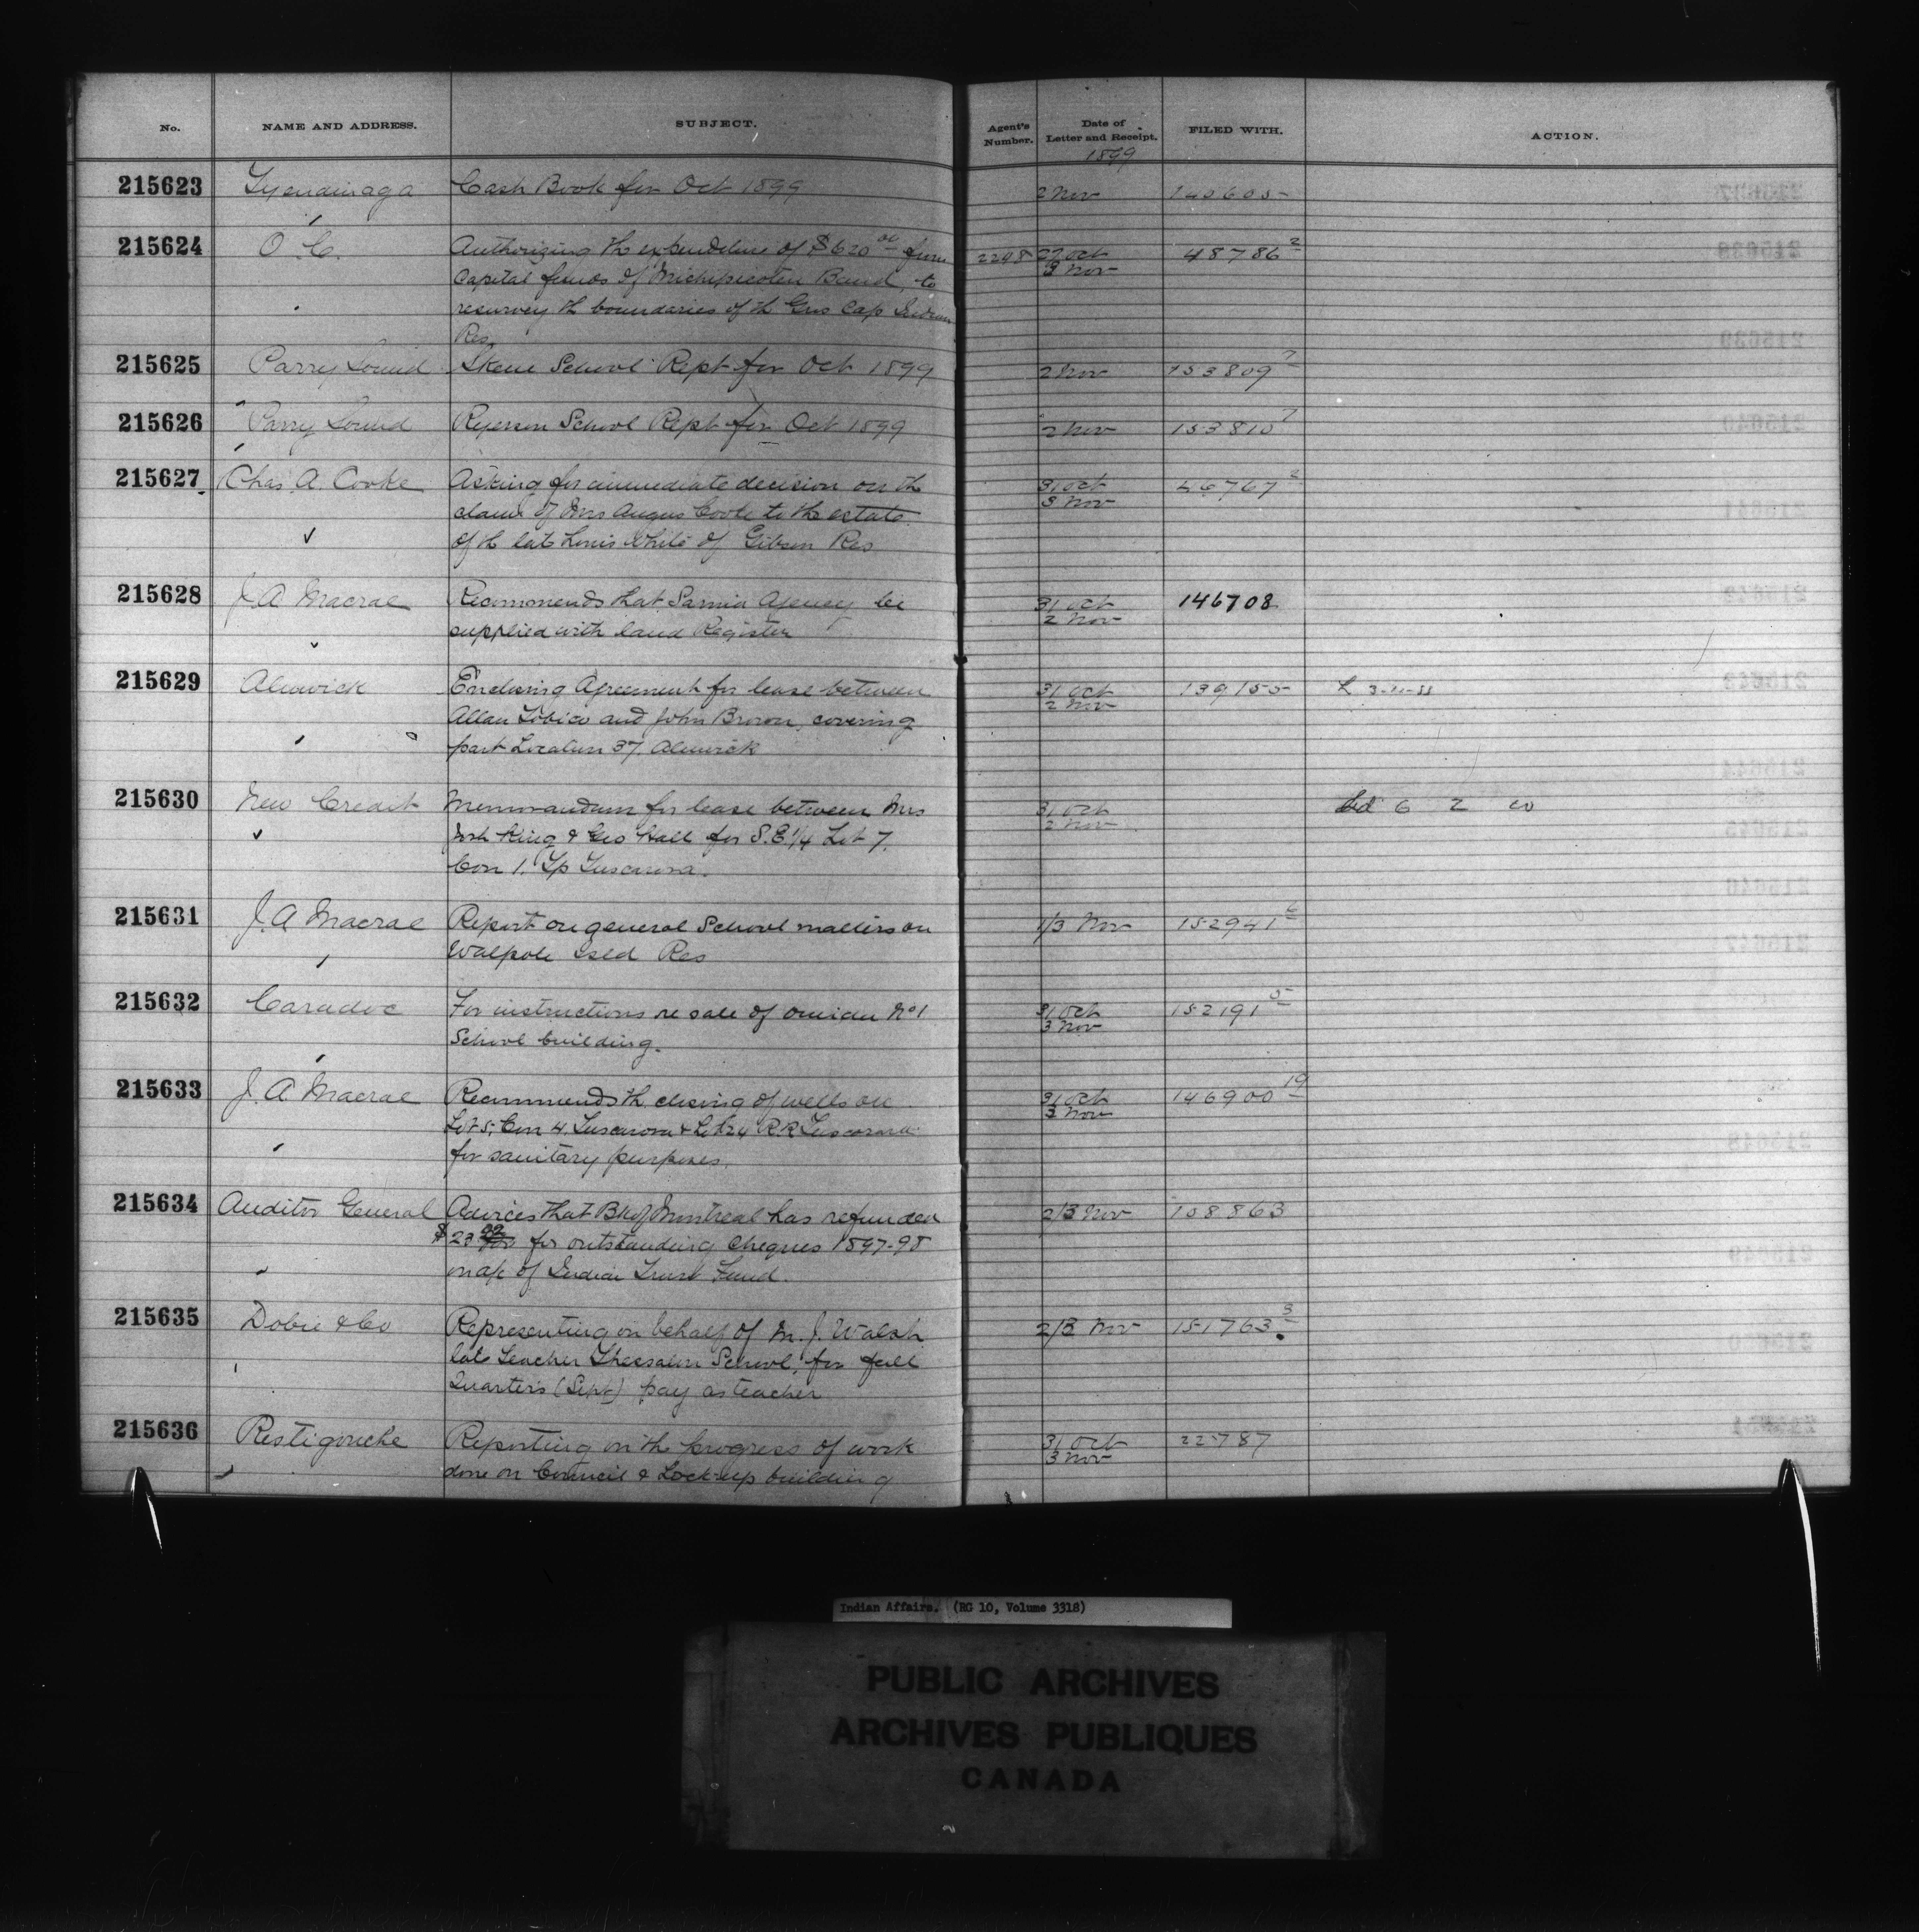 No. NAME AND ADDRESS. SUBJECT. Agent's Number. Date of Letter and Receipt. FILED WITH. ACTION.
1899
215623 Tyendinaga Cash Book for Oct 1899 2 Nov 140605
215624 O.C. Authorizing the expenditure of $620 00 from 2298 27 Oct 48786 2
Capital funds of Michipicoten Band, to 3 Nov
resurvey th boundaries of th Gros Cap Indian
Res.
215625 Parry Sound Skene School Rept for Oct 1899 2 Nov 153809 7
215626 Parry Sound Ryerson School Rept for Oct 1899 2 Nov 153810 7
215627 Chas. A. Cooke Asking for immediate decision on th 31 Oct 46767 2
claim of Mrs Angus Cooke to the estate 3 Nov
of th late Louis White of Gibson Res
215628 J. A Macrae Recommends that Sarnia Agency be 31 Oct 146708
supplied with land Register 2 Nov
215629 Alnwick Enclosing Agreement for lease between 31 Oct 139155
Allan Tobico and John Brown, covering 2 Nov
part Location 37, Alnwick
215630 New Credit Memorandum for lease between Mrs 31 Oct 6 2
King & Geo Hall for S.E. 1/4 Lot 7. 2 Nov
Con 1. Tp Tuscarora.
215631 J. A Macrae Report on general School matters on 1/3 Nov 152941 6
Walpole Isld Res
215632 Caradoc For instructions re sale of Oneida No 1 31 Oct 152191 5
School building. 3 Nov
215633 J. A Macrae Recommends th closing of wells on 31 Oct 146900 19
Lot 5, Con 4. Tuscarora & Lot 24 R.R. Tuscarora 3 Nov
for sanitary purposes.
215634 Auditor General Advices that Bk of Montreal has refunded 2/3 Nov 158863
$23 for outstanding cheques 1897-98
on a/c of Indian Trust Fund.
215635 Dobie & Co Representing on behalf of M. J. Walsh 2/3 Nov 151763 3
late teacher Thessalon School, for full
Quarter's (Sept) pay as teacher
215636 Restigouche Reporting on th progress of work 31 Oct 22787
done on Council & Lock-up building 3 Nov
Indian Affairs. (RG 10, Volume 3318)
PUBLIC ARCHIVES
ARCHIVES PUBLIQUES
CANADA